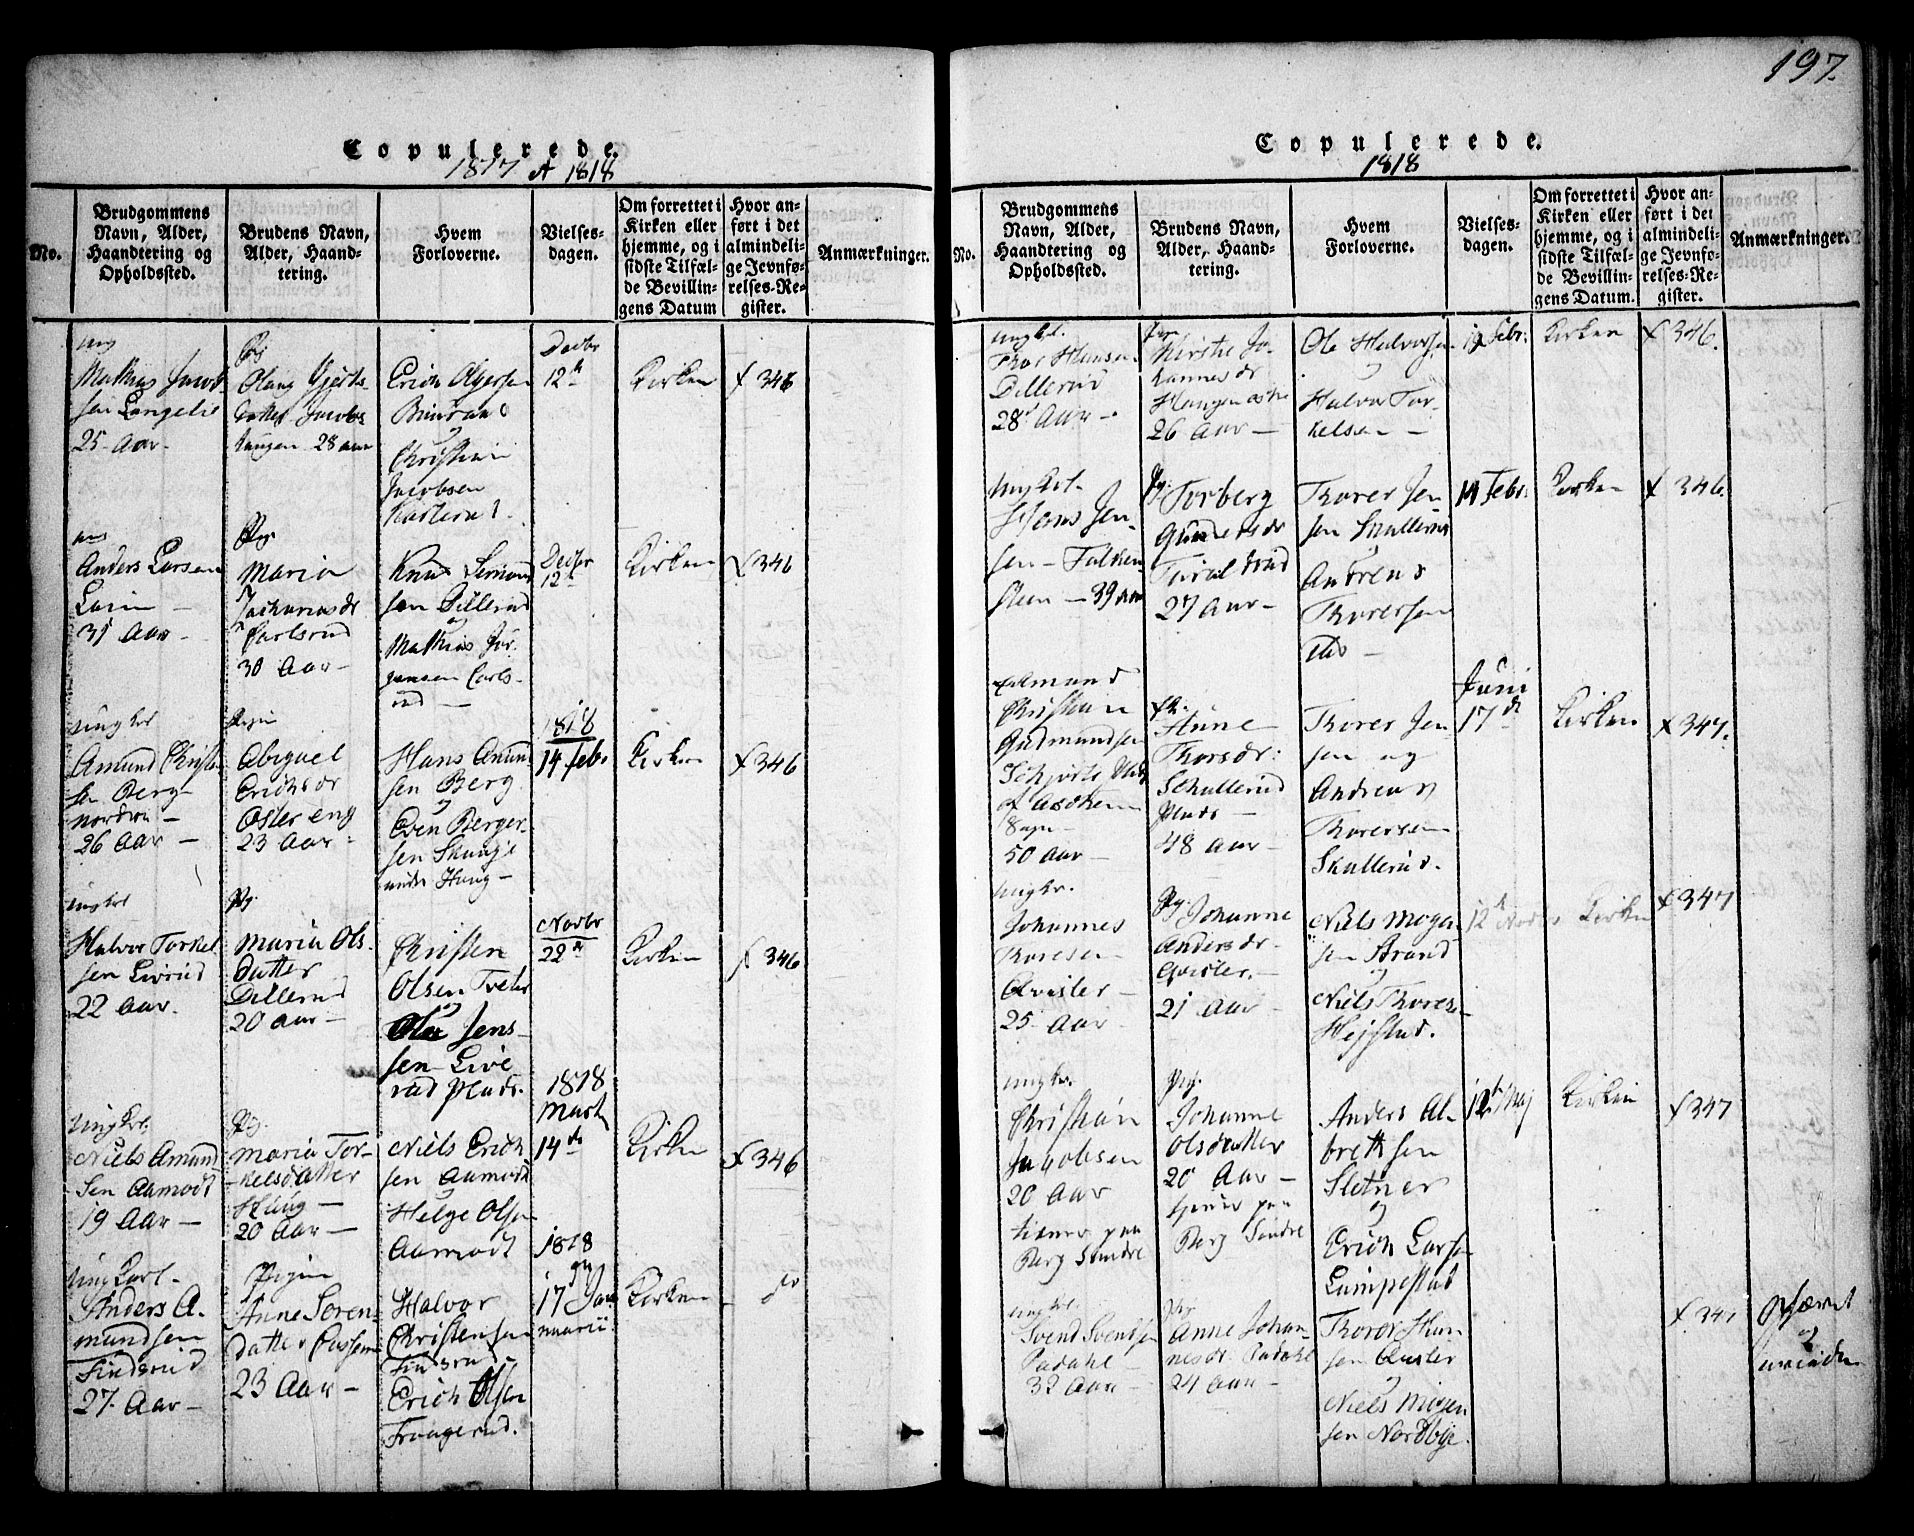 197.
Copulerede.
1817 A 1818
No.
Brudgommens Navn, Alder, Haandtering og Opholdssted.
Brudens Navn, Alder, Haandtering.
Hvem Forloverne.
Vielsesdagen.
Om forrettet i Kirken eller hjemme, og i sidste Tilfælde Bevillingens Datum
Hvor anført i det almindelige Jevnførelses-Register.
Anmærkninger.
ung
Mathias Jacob
sen Langelie
25 Aar
Pig
Olaug Gjerts
datter Jacobs
haugen 28 aar
Erich Olgersen
og
Christian
Jacobsen
Decbr
12
Kirken
x 346
ung
Anders Larsen
31 Aar
Pig.
Maria
Zachariasdr
Carlsrud
30 Aar
Knud
sen Dillerud
og
Mathias Jør
gensen Carls
rud
Decbr
12
Kirken
x 346
ungkrl
Amund Christen
sen Berg
nordre
26 Aar
Pigen
Abiguel
Erichsdr
Østereng
23 Aar
Hans Amund
sen Berg
og
Even Berger
sen Skauge
under Haug
1818
14 febr
Kirken
x 346
ungkrl
Halvor Torkel
sen Livrud
22 Aar.
Pig.
Maria Ols
datter
Dillerud
20 aar
Christen
Olsen Tveter
og
Ole Jens
sen Live
rud Plads.
Novbr
22
Kirken
x 346
ungkrl.
Niels Amund
sen Aamodt
19 Aar
Pig.
Maria Tor
kelsdatter
Haug
20 Aar
Niels Erich
sen Aamodt
og
Helge Olsen
Aamodt
1818
Marts
14de
Kirken
x 346
ungkarl.
Anders A
mundsen
Finderud
27 Aar
Pigen
Anne Søren
datter
23 Aar
Halvor
Christensen
Finderud
Erich Olsen
Fraugerud.
1818
17 Janu
uarii
Kirken
do
Copulerede.
1818
No.
Brudgommens Navn, Alder, Haandtering og Opholdssted.
Brudens Navn, Alder, Haandtering.
Hvem Forloverne.
Vielsesdagen.
Om forrettet i Kirken eller hjemme, og i sidste Tilfælde Bevillingens Datum.
Hvor anført i det almindelige Jevnførelses-Register.
Anmærkninger.
ungkrl.
Thor Hansen
Dillerud
28 Aar
Pige
Kirstie Jo
hannesdr
Haugen
26 Aar
Ole Halvorsen
Halvor Tor
kelsen
19 Febr.
Kirken
x 346.
ungkrl.
Hans Jen
sen Falken
steen 39 aar
Pg. Torberg
Gundersdr
27 Aar
Thorer Jen
sen Skullerud
og
Andreas
Thorersen
14 Febr.
Kirken
x 346
Enkemand
Christian
Gudmundsen
50 Aar
Anne
Thorsdr:
Skullerud
Plads
48 aar
Thorer Jen
sen og
Andreas
Thorersen
Skullerud.
Juni
17de
Kirken
x 347.
ungkr.
Johannes
Thoresen
Qvisler
25 Aar
Pg. Johanne
Andersdr.
Qvisler.
21 Aar
Niels Mogen
sen Brand
og
Niels Thores
Hejstad.
12 Novbr
Kirken
x 347
ungkr.
Christian
Jacobsen
20 Aar
tiener paa
Berg Søndre
Pg.
Johanne
Olsdatter
20 Aar
tjener paa
Berg Søndre
Anders Al
brethsen
Sletner
og
Erich Larsen
Lampestad
12 Maj
Kirken
x 347
ungkrl.
Svend Svendsen
Padahl
32 Aar
Pig
Anne Johan
nesdr Padahl
24 aar
Thorer Han
sen Qvisler
og
Niels Mogen
sen Nordbye.
x 347